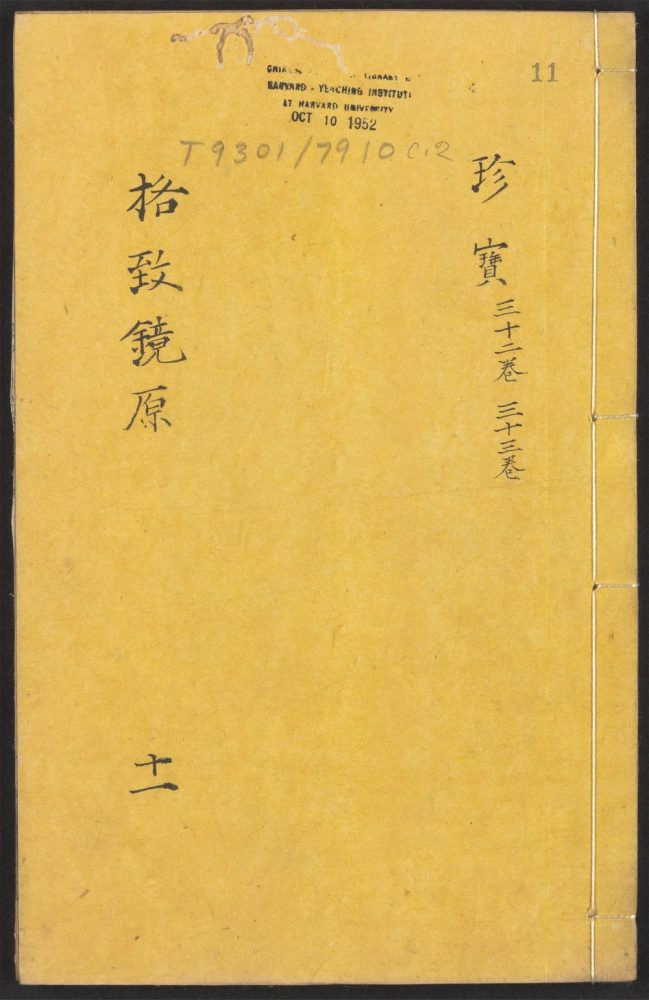 11
HARVARD-YENCHING INSTITUTE
AT HARVARD UNIVERSITY
OCT 10 1952
T9301/7910 C.2
珍寶 三十二卷 三十三卷
格致鏡原
十一